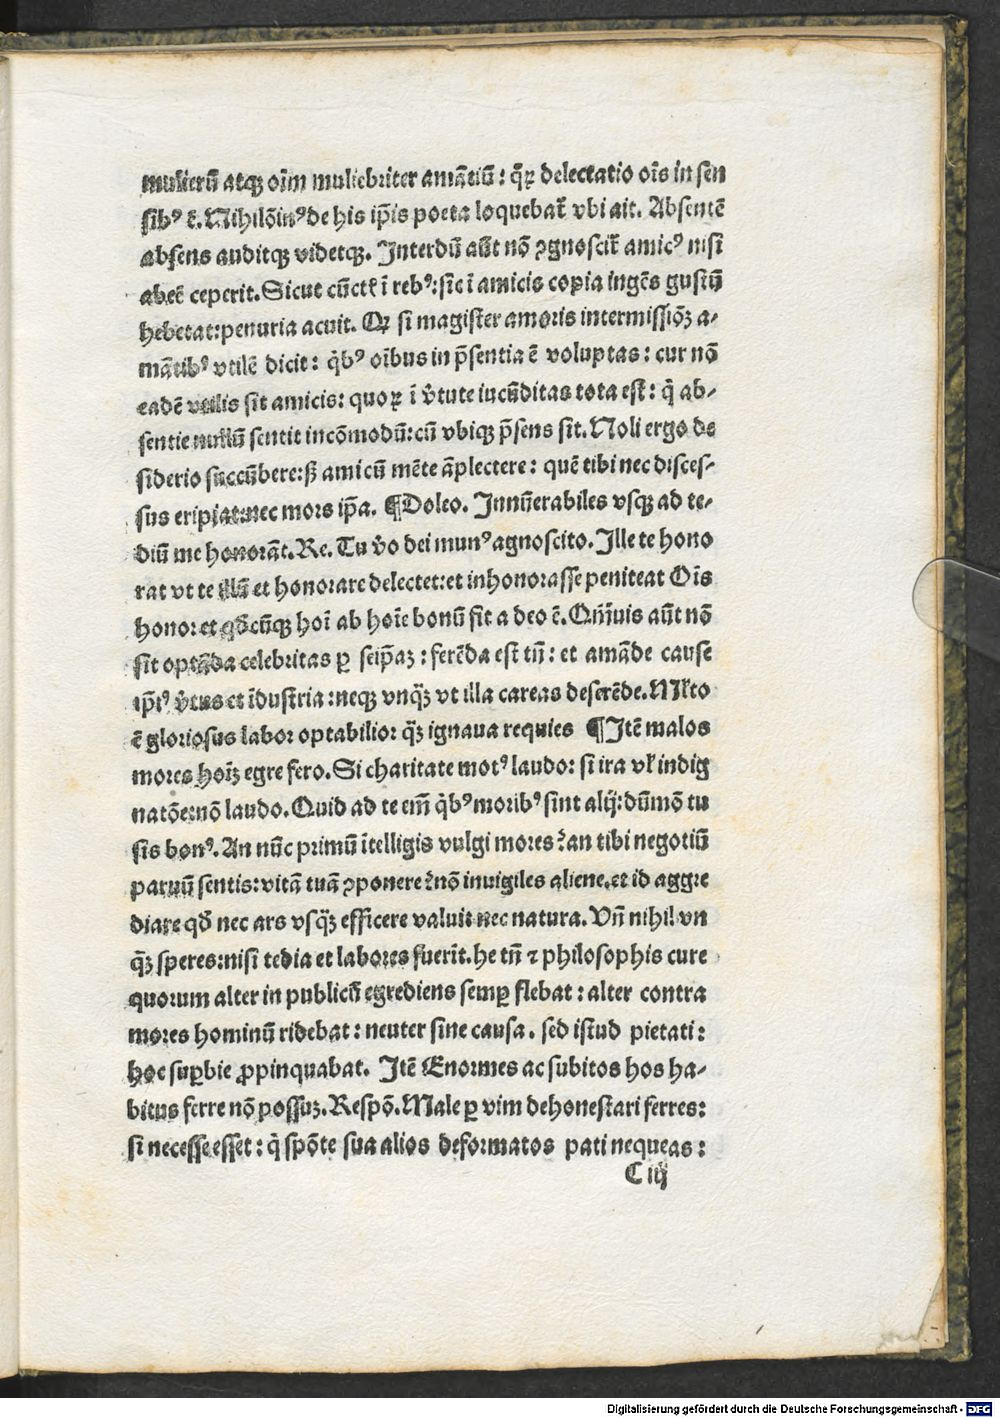 mulierū atqꝫ oīm muliebriter amātiū: q̄ꝝ delectatio oīs in sen
sibꝰ ē. Nihilōinꝰ de his ip̄is poeta loquebat̄ vbi ait. Absentē
absens auditqꝫ videtqꝫ. Interdū aūt nō ꝯgnoscit̄ amicꝰ nisi
abeē ceperit. Sicut cūctꝭ ī rebꝰ: sic ī amicis copia ingēs gustū
hebetat: penuria acuit. Qꝛ si magister amoris intermissiōꝫ a⸗
mātibꝰ vtilē dicit: q̇bꝰ oībus in p̄sentia ē voluptas: cur nō
eadē vtilis sit amicis: quoꝝ ī v̇tute iucūditas tota est: q̇ ab⸗
sentie nullū sentit incōmodū: cū vbiqꝫ p̄sens sit. Noli ergo de
siderio succūbere: sꝫ amicū mēte āplectere: quē tibi nec disces⸗
sus eripiat: nec mors ip̄a. ¶ Doleo. Innūerabiles vsqꝫ ad te⸗
diū me honorāt. Re. Tu v̇o dei munꝰ agnoscito. Ille te hono
rat vt te illū et honorare delectet: et inhonorasse peniteat Oīs
honor: et qd̄cūqꝫ hoī ab hoīe bonū fit a deo ē. Qm̄uis aūt nō
sit optāda celebritas ꝑ seip̄aꝫ: ferēda est tn̄: et amāde cause
ip̄iꝰ v̇tus et īdustria: neqꝫ vnq̄ꝫ vt illa careas deserēde. Ml̄to
ē gloriosus labor optabilior q̄ꝫ ignaua requies ¶ Itē malos
mores hoīꝫ egre fero. Si charitate motꝰ laudo: si ira vl̓ indig
natōe: nō laudo. Quid ad te em̄ q̇bꝰ moribꝰ sint alij: dūmō tu
sis bonꝰ. An nūc primū ītelligis vulgi mores ⁊̓ an tibi negotiū
paruū sentis: vitā tuā ꝯponere ⁊̓ nō inuigiles aliene. et id aggre
diare qd̓ nec ars vsq̄ꝫ efficere valuit nec natura. Vn̄ nihil vn
q̄ꝫ speres: nisi tedia et labores fuerīt. he tn̄ ⁊ philosophis cure
quorum alter in publicū egrediens semꝑ flebat: alter contra
mores hominū ridebat: neuter sine causa. sed istud pietati:
hoc suꝑbie ꝓpinquabat. Itē Enormes ac subitos hos ha⸗
bitus ferre nō possuꝫ. Respō. Male ꝑ vim dehonestari ferres:
si necesse esset: q̇ spōte sua alios deformatos pati nequeas:
C iij
Digitalisierung gefördert durch die Deutsche Forschungsgemeinschaft - DFG